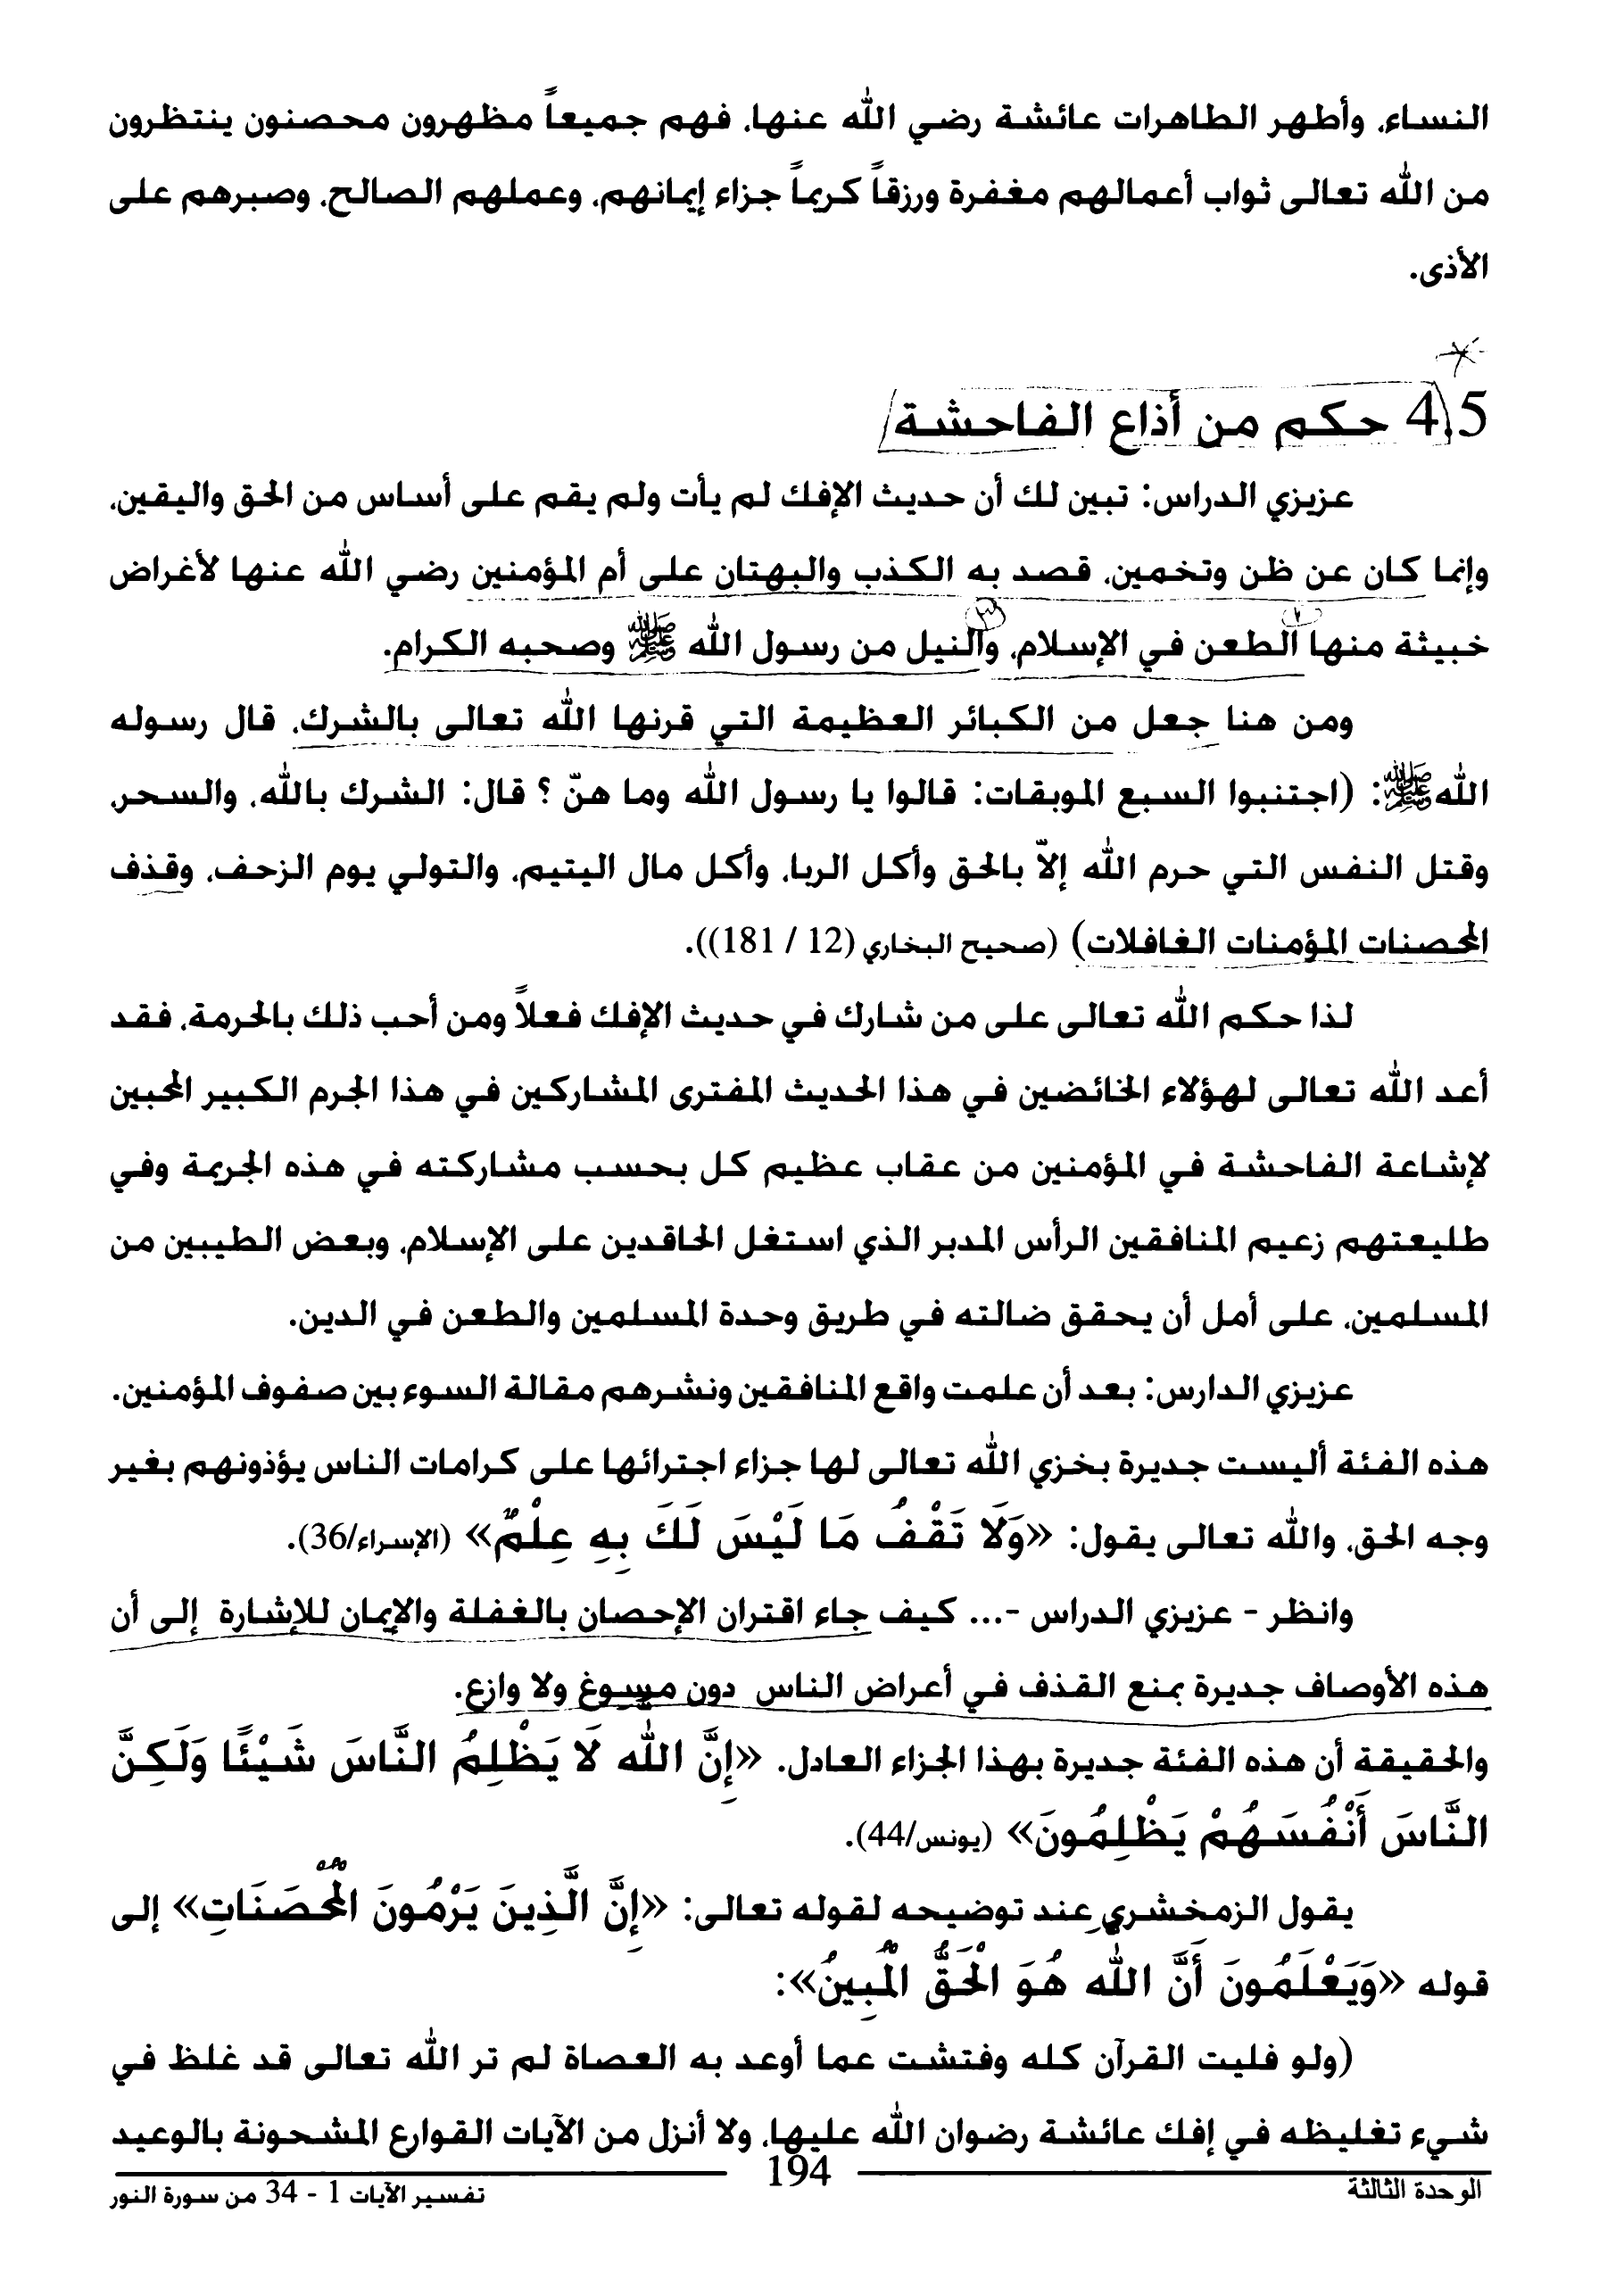 النساء، وأطهر الطاهرات عائشة رضي الله عنها، فهم جميعاً مظهرون محصنون ينتظرون
من الله تعالى ثواب أعمالهم مغفرة ورزقاً كريماً جزاء إيمانهم، وعملهم الصالح، وصبرهم على
الأذى.
4.5 حكم من أذاع الفاحشة
عزيزي الدراس: تبين لك أن حديث الإفك لم يأت ولم يقم على أساس من الحق واليقين،
وإنما كان عن ظن وتخمين، قصد به الكذب والبهتان على أم المؤمنين رضي الله عنها لأغراض
خبيثة منها الطعن في الإسلام، والنيل من رسول الله ﷺ وصحبه الكرام.
ومن هنا جعل من الكبائر العظيمة التي قرنها الله تعالى بالشرك، قال رسوله
الله ﷺ: (اجتنبوا السبع الموبقات: قالوا يا رسول الله وما هنّ ؟ قال: الشرك بالله، والسحر،
وقتل النفس التي حرم الله إلاّ بالحق وأكل الربا، وأكل مال اليتيم، والتولي يوم الزحف، وقذف
المحصنات المؤمنات الغافلات) (صحيح البخاري (12 / 181)).
لذا حكم الله تعالى على من شارك في حديث الإفك فعلاً ومن أحب ذلك بالحرمة، فقد
أعد الله تعالى لهؤلاء الخائضين في هذا الحديث المفترى المشاركين في هذا الجرم الكبير المحبين
لإشاعة الفاحشة في المؤمنين من عقاب عظيم كل بحسب مشاركته في هذه الجريمة وفي
طليعتهم زعيم المنافقين الرأس المدبر الذي استغل الحاقدين على الإسلام، وبعض الطيبين من
المسلمين، على أمل أن يحقق ضالته في طريق وحدة المسلمين والطعن في الدين.
عزيزي الدارس: بعد أن علمت واقع المنافقين ونشرهم مقالة السوء بين صفوف المؤمنين.
هذه الفئة أليست جديرة بخزي الله تعالى لها جزاء اجترائها على كرامات الناس يؤذونهم بغير
وجه الحق، والله تعالى يقول: «وَلَا تَقْفُ مَا لَيْسَ لَكَ بِهِ عِلْمٌ» (الإسراء/36).
وانظر - عزيزي الدراس -... كيف جاء اقتران الإحصان بالغفلة والإيمان للإشارة إلى أن
هذه الأوصاف جديرة بمنع القذف في أعراض الناس دون مسوغ ولا وازع.
والحقيقة أن هذه الفئة جديرة بهذا الجزاء العادل. «إِنَّ الله لَا يَظْلِمُ النَّاسَ شَيْئًا وَلَكِنَّ
النَّاسَ أَنْفُسَهُمْ يَظْلِمُونَ» (يونس/44).
يقول الزمخشري عند توضيحه لقوله تعالى: «إِنَّ الَّذِينَ يَرْمُونَ الْمُحْصَنَاتِ» إلى
قوله «وَيَعْلَمُونَ أَنَّ الله هُوَ الْحَقُّ الْمُبِينُ»:
(ولو فليت القرآن كله وفتشت عما أوعد به العصاة لم تر الله تعالى قد غلظ في
شيء تغليظه في إفك عائشة رضوان الله عليها، ولا أنزل من الآيات القوارع المشحونة بالوعيد
الوحدة الثالثة 194 تفسير الآيات 1 - 34 من سورة النور